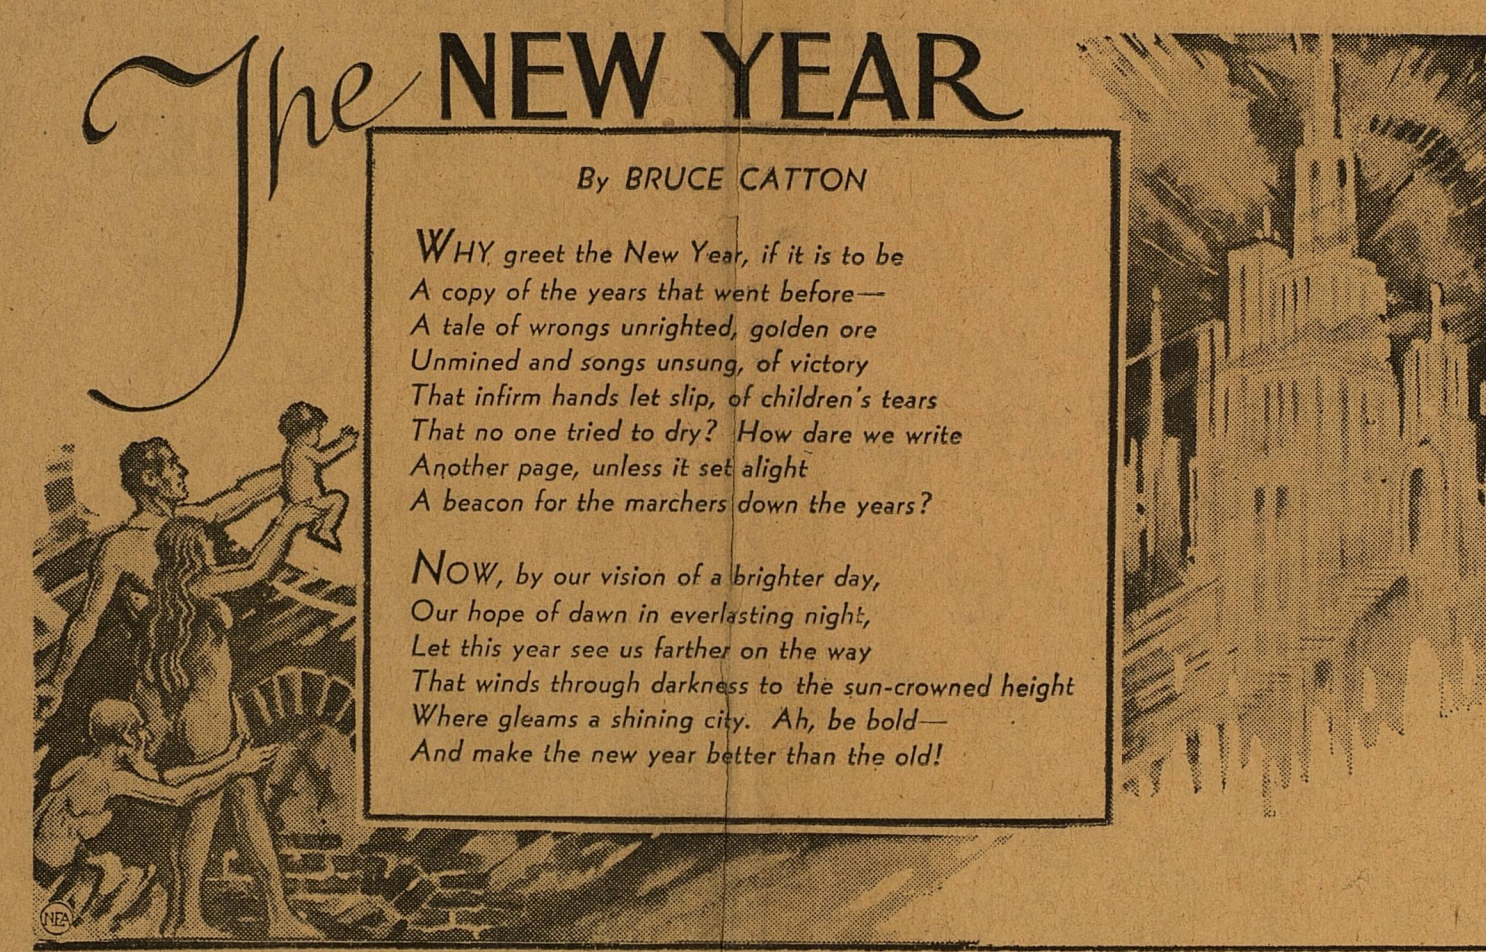 The NEW YEAR
By BRUCE CATTON
WHY greet the New Year, if it is to be
A copy of the years that went before—
A tale of wrongs unrighted, golden ore
Unmined and songs unsung, of victory
That infirm hands let slip, of children's tears
That no one tried to dry? How dare we write
Another page, unless it set alight
A beacon for the marchers down the years?
NOW, by our vision of a brighter day,
Our hope of dawn in everlasting night,
Let this year see us farther on the way
That winds through darkness to the sun-crowned height
Where gleams a shining city. Ah, be bold—
And make the new year better than the old!
NEA